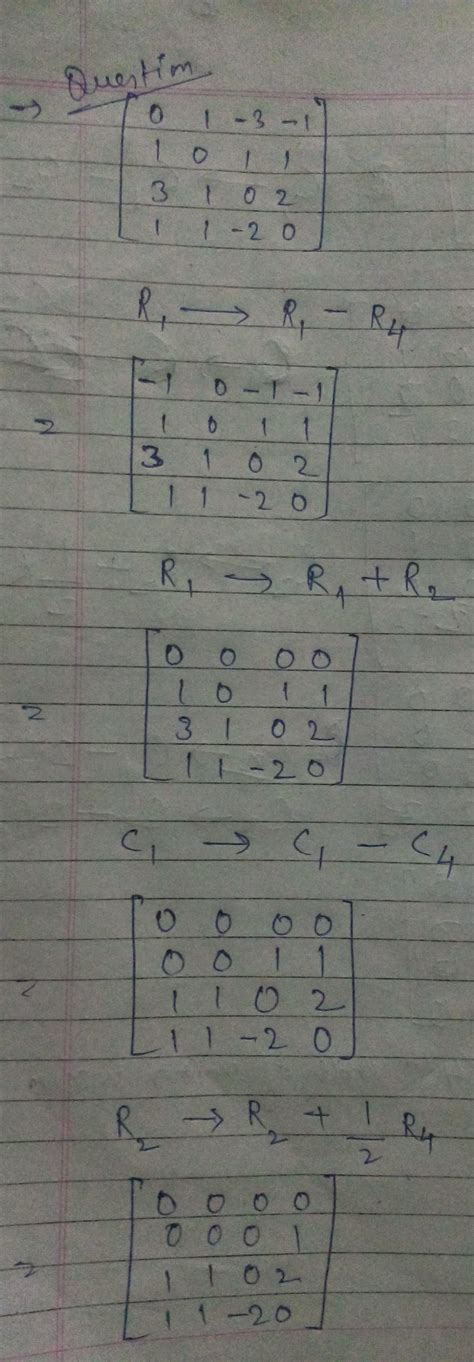 Question
→ [ 0 1 -3 -1
1 0 1 1
3 1 0 2
1 1 -2 0 ]
R₁ → R₁ - R₄
= [ -1 0 -1 -1
1 0 1 1
3 1 0 2
1 1 -2 0 ]
R₁ → R₁ + R₂
= [ 0 0 0 0
1 0 1 1
3 1 0 2
1 1 -2 0 ]
C₁ → C₁ - C₄
= [ 0 0 0 0
0 0 1 1
1 1 0 2
1 1 -2 0 ]
R₂ → R₂ + 1/2 R₄
= [ 0 0 0 0
0 0 0 1
1 1 0 2
1 1 -2 0 ]